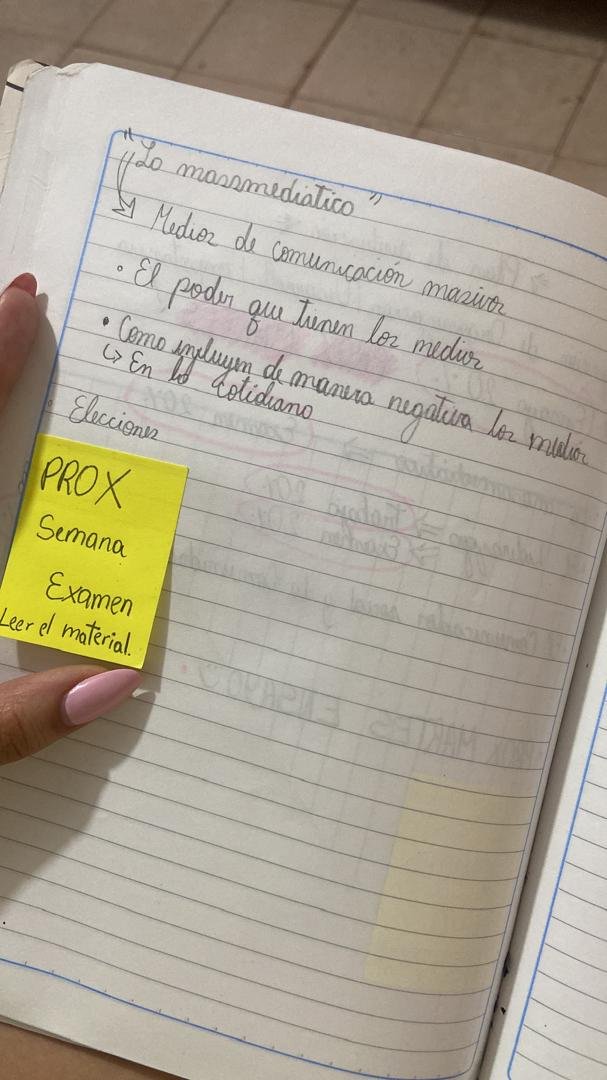 "Lo massmediatico"
↳ Medios de comunicación masivos
• El poder que tienen los medios
• Como influyen de manera negativa los medios
↳ En lo cotidiano
• Elecciones
PROX
Semana
Examen
Leer el material.